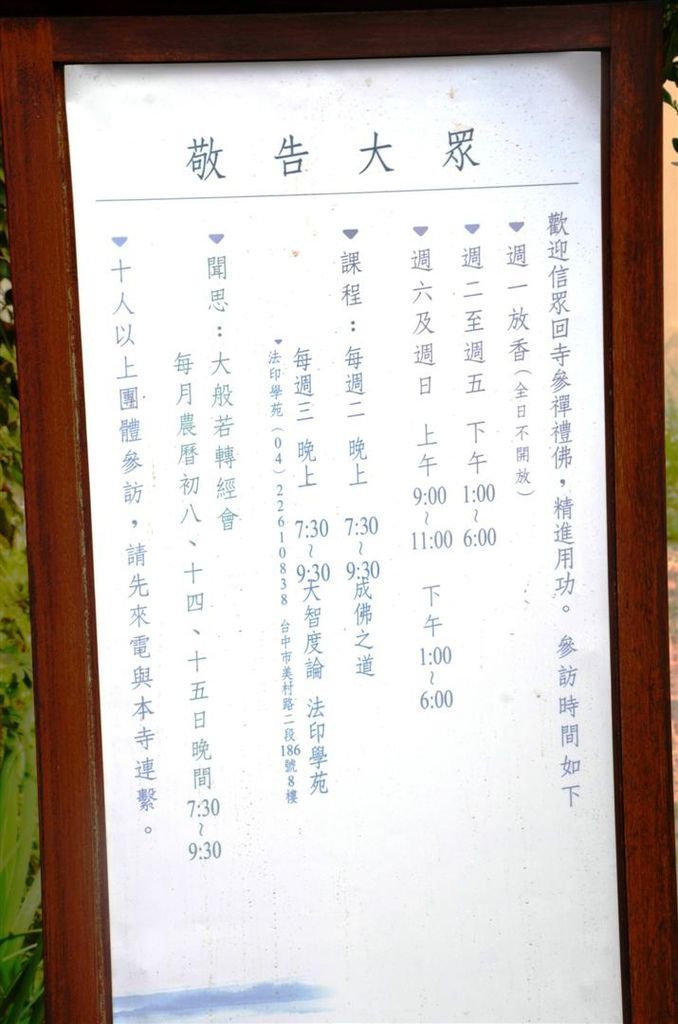 敬告大眾
歡迎信眾回寺參禪禮佛，精進用功。參訪時間如下
▼週一放香（全日不開放）
▼週二至週五 下午1:00~6:00
▼週六及週日 上午9:00~11:00 下午1:00~6:00
▼課程：每週二 晚上 7:30~9:30 成佛之道
每週三 晚上 7:30~9:30 大智度論 法印學苑
▼法印學苑（04）22610838 台中市美村路二段186號8樓
▼聞思：大般若轉經會
每月農曆初八、十四、十五日晚間7:30~9:30
▼十人以上團體參訪，請先來電與本寺連繫。